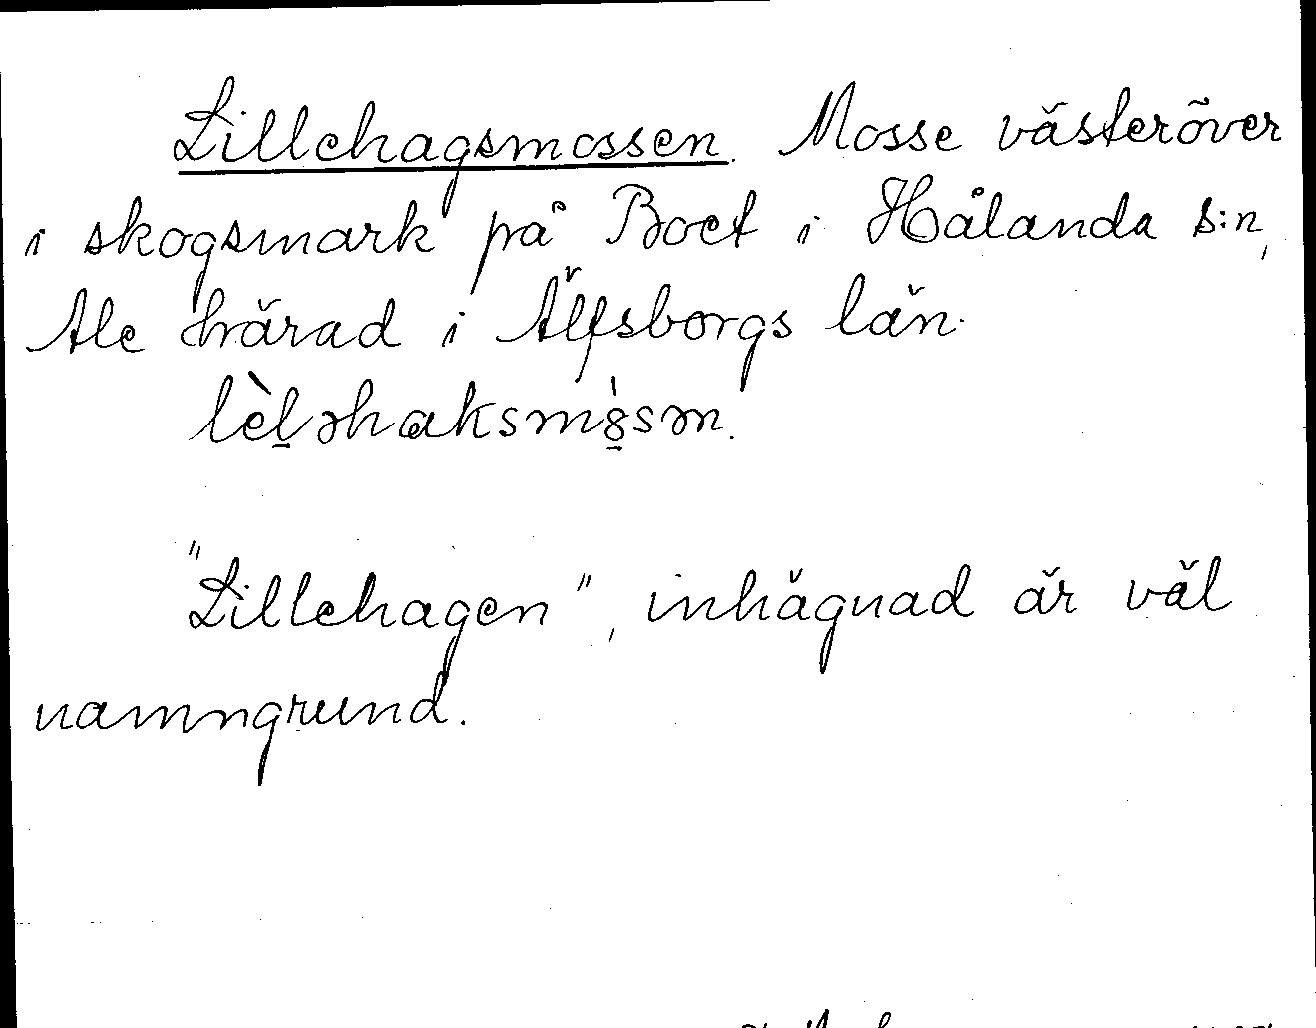 Lillehagsmossen. Mosse västeröver
i skogsmark på Boet i Hålanda s:n,
Ale härad i Älfsborgs län.
lèl̠əhaksmo̠̍sən.

"Lillehagen", inhägnad är väl
namngrund.